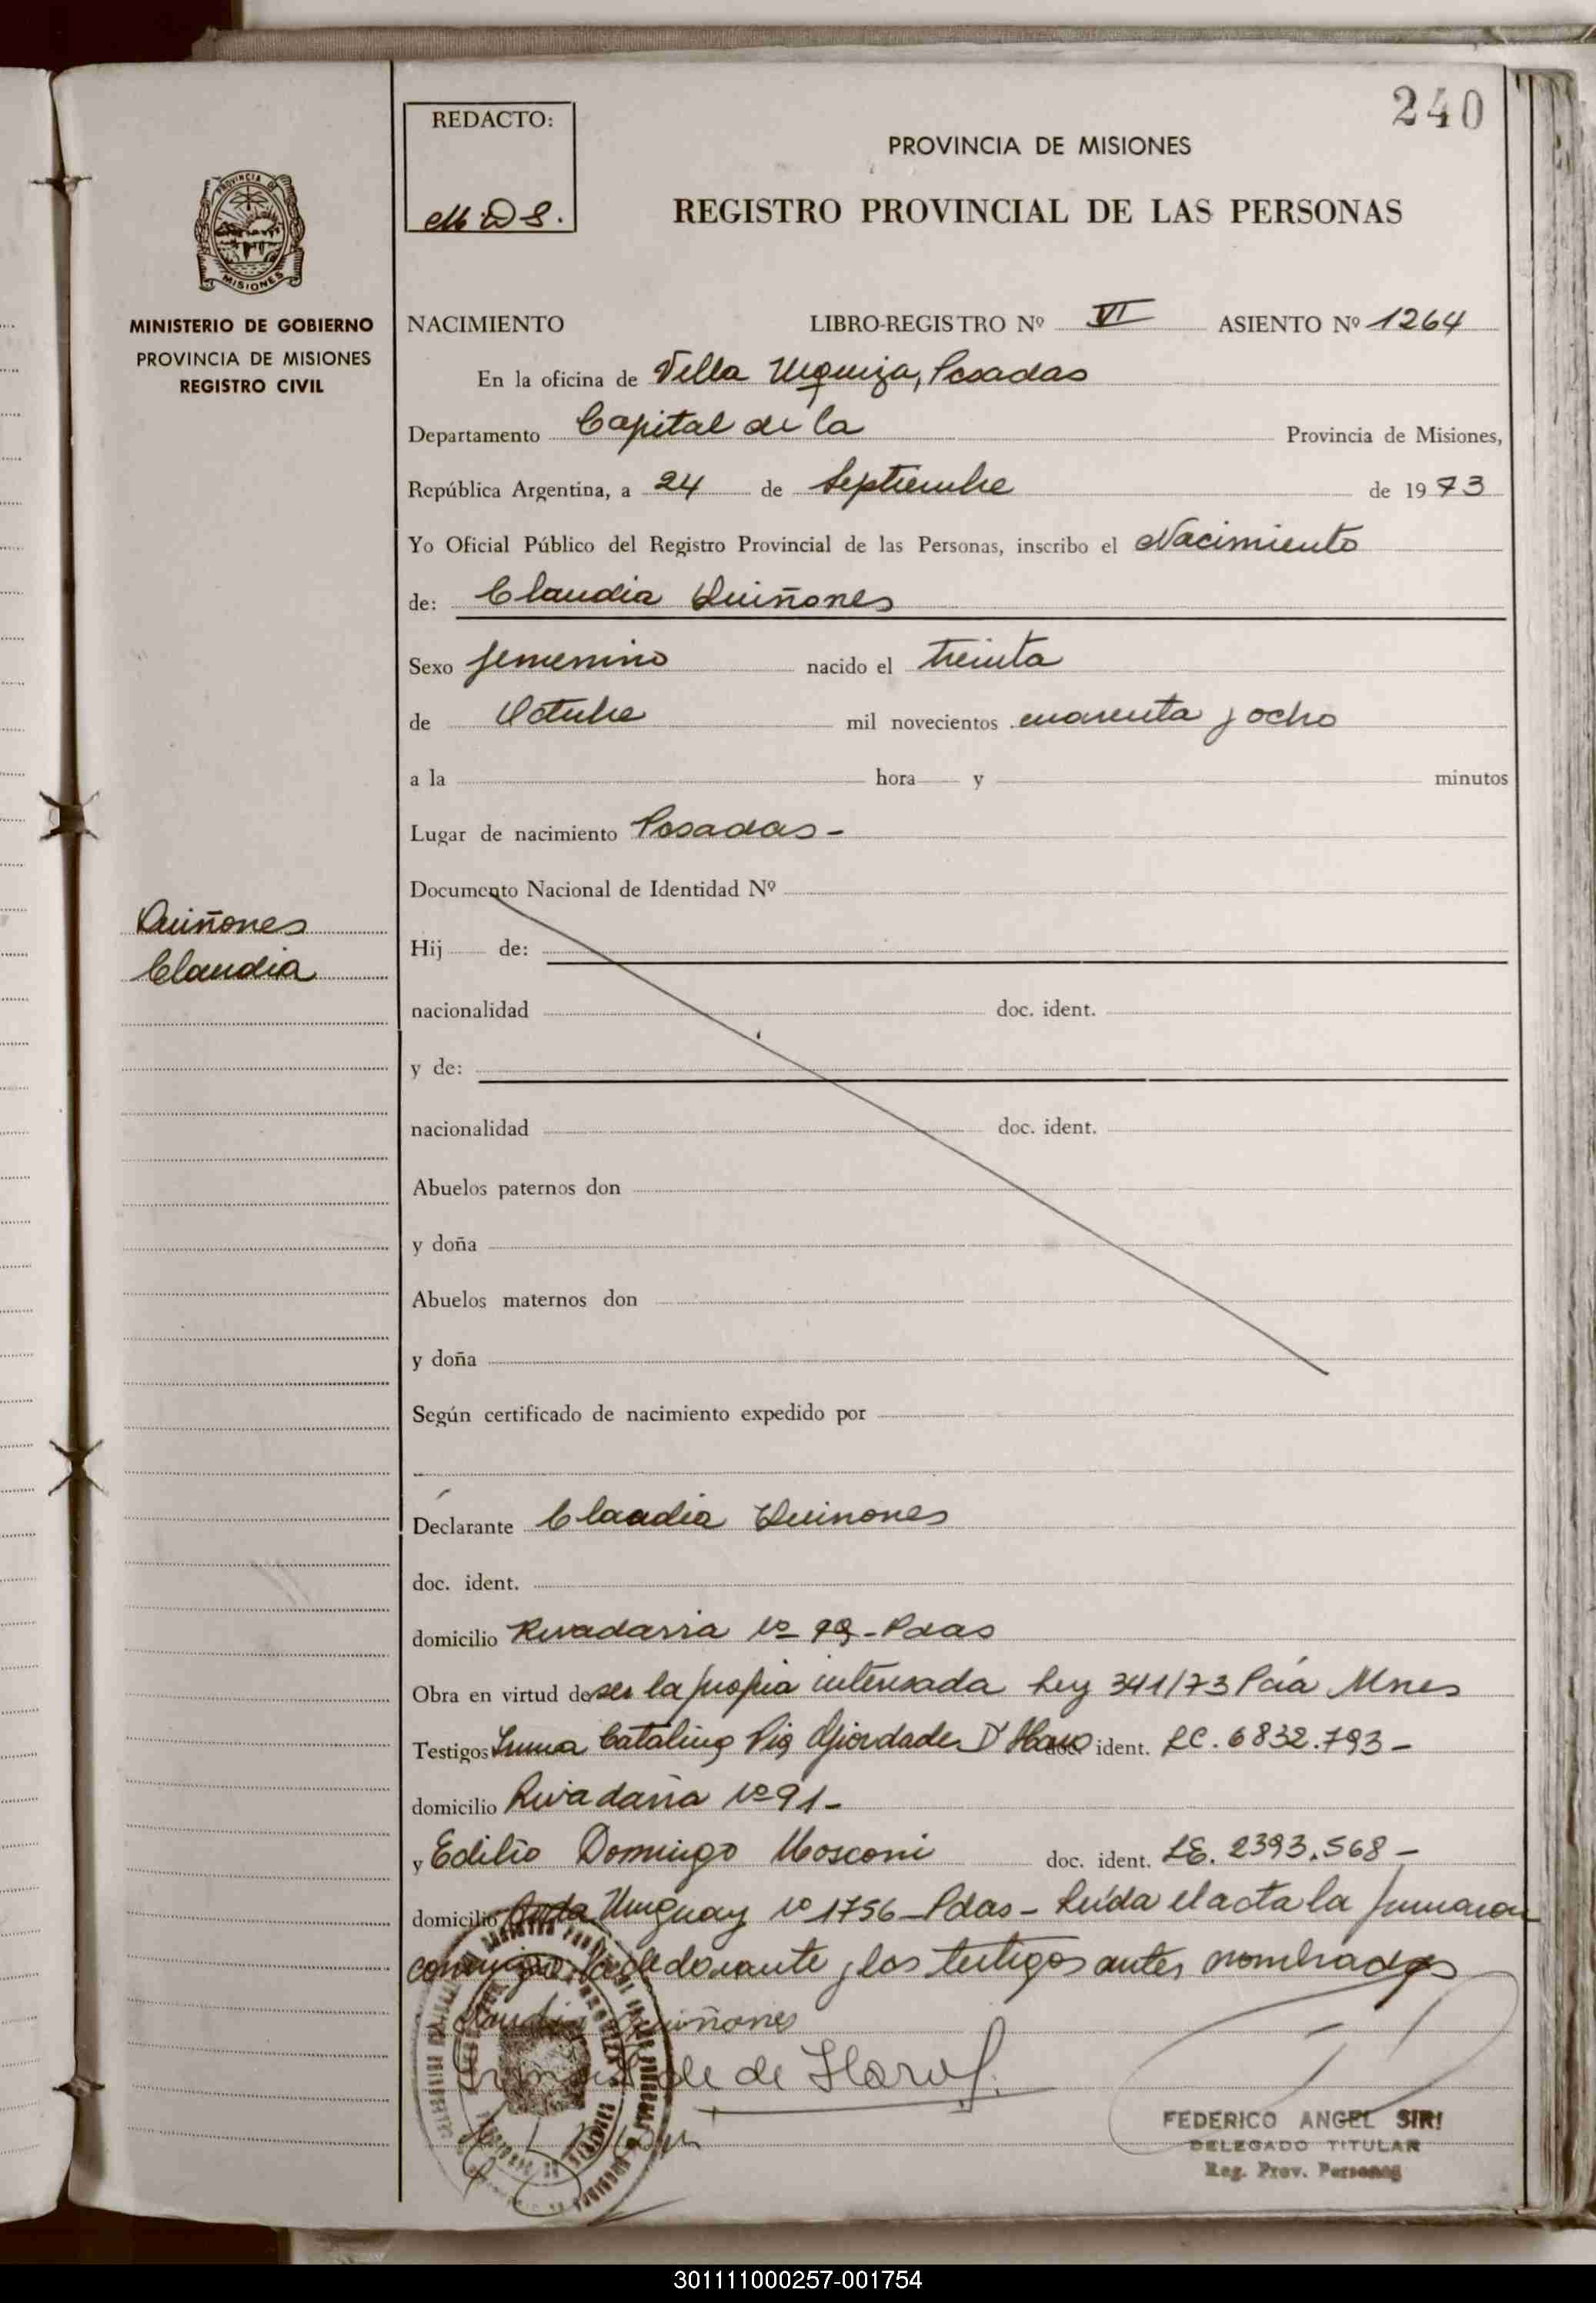 240
REDACTO:
PROVINCIA DE MISIONES
REGISTRO PROVINCIAL DE LAS PERSONAS
PROVINCIA DE
MISIONES
MINISTERIO DE GOBIERNO
PROVINCIA DE MISIONES
REGISTRO CIVIL
NACIMIENTO LIBRO-REGISTRO Nº VI ASIENTO Nº 1264
En la oficina de Villa Urquiza, Posadas
Departamento Capital de la Provincia de Misiones,
República Argentina, a 24 de Septiembre de 1973
Yo Oficial Público del Registro Provincial de las Personas, inscribo el Nacimiento
de: Claudia Quiñones
Sexo femenino nacido el treinta
de Octubre mil novecientos cuarenta y ocho
a la hora y minutos
Lugar de nacimiento Posadas -
Documento Nacional de Identidad Nº
Quiñones
Claudia
Hij de:
nacionalidad doc. ident.
y de:
nacionalidad doc. ident.
Abuelos paternos don
y doña
Abuelos maternos don
y doña
Según certificado de nacimiento expedido por
Declarante Claudia Quinones
doc. ident.
domicilio Rivadavia Nº - Pdas
Obra en virtud de ser la propia interesada Ley 341/73 Mnes
Testigos Catalina doc. ident. LC. 6832.793 -
domicilio Rivadavia Nº 91 -
y Edilio Domingo Mosconi doc. ident. LE. 2393.568 -
domicilio Uruguay Nº 1756 - Pdas - Leída el acta la firmaron
conmigo la declarante y los testigos antes nombrados
Claudia Quiñones
de
FEDERICO ANGEL SIRI
DELEGADO TITULAR
Reg. Prov. Personas
301111000257-001754